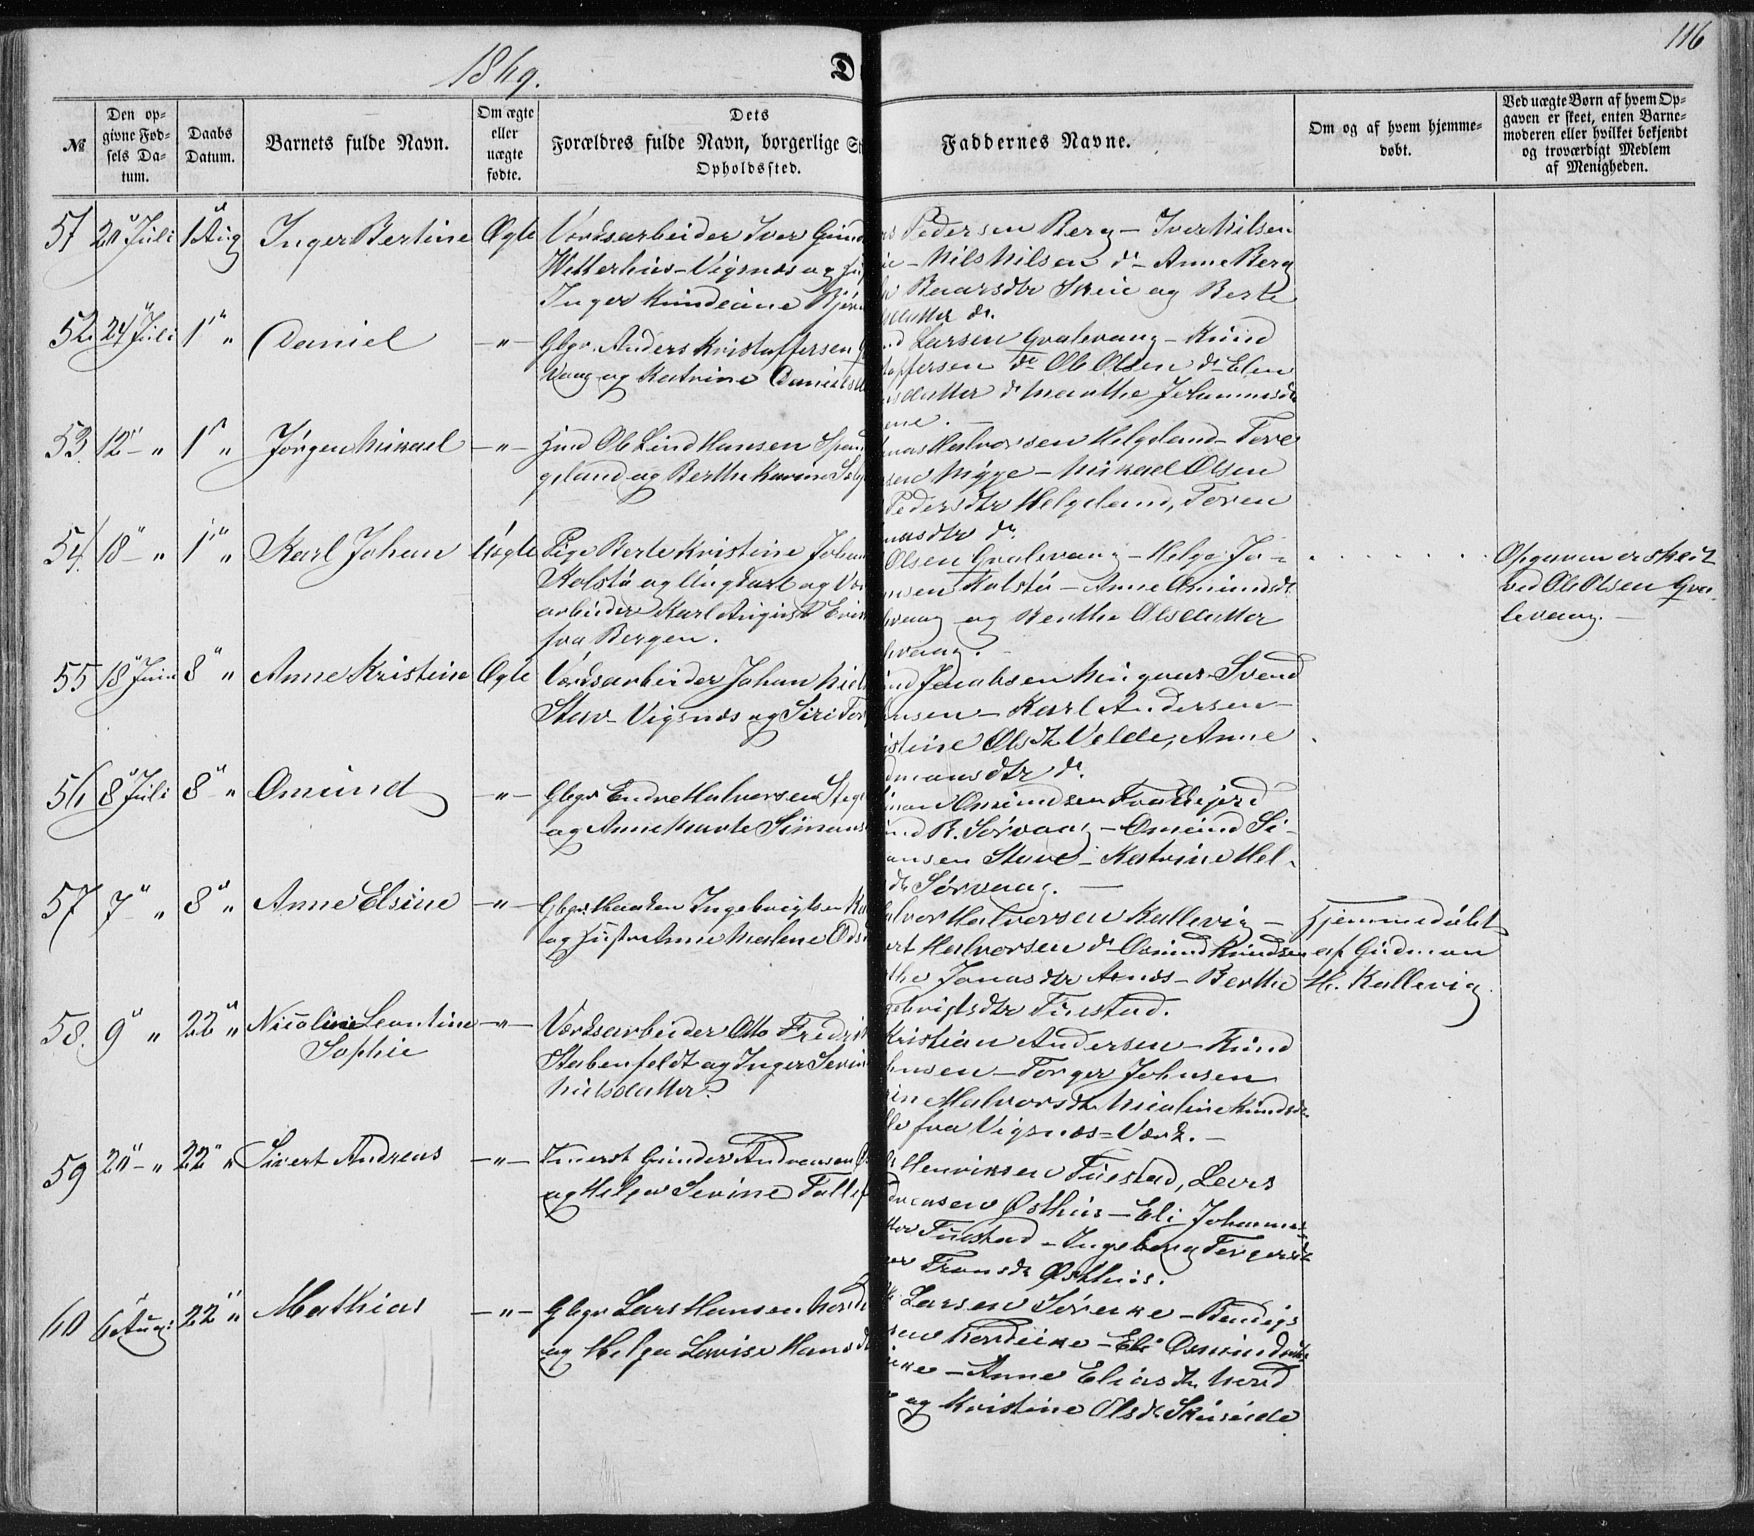 1869.
D
116
№
Den opgivne Fødsels Datum.
Daabs Datum.
Barnets fulde Navn.
Om ægte eller uægte fødte.
Dets
Forældres fulde Navn, borgerlige St
Opholdssted.
Faddernes Navne.
Om og af hvem hjemmedøbt.
Ved uægte Børn af hvem Opgaven er skeet, enten Barnemoderen eller hvilket bekjendt og troværdigt Medlem af Menigheden.
51 20 Juli 1 Aug Inger Bertine Ægte Værksarbeider Iver Gund
Vetterhus-Vigsnæs og
Inger Knudeane Bjør
Pedersen Berg - Iver Nilsen
- Nils Nilsen d° - Anne Berg
Baarsdtr Skeie og Berte
datter d°.
52 24 Juli 1 " Daniel -"- Gbgr. Anders Kristoffersen
Vaag og Katrine Daniels
Larsen Gvalevaag - Knud
toffersen d° Ole Olsen d° Elen
sdatter d° Marthe Johannesdt
53. 12 - " 1 " Jørgen Mikael -"- Hmd Ole Lind Hansen Span
geland og Berthe Karine
Halvorsen Helgeland - Tore
sen Mygge - Mikael Olsen
Pedersdtr Helgeland, Toren
nasdtr d°
54. 18 - " 1 " Karl Johan Uægte Pige Berte Kristine Johan
Kolstø og Ungkarl og Vær
arbeider Karl August
fra Bergen.
Olsen Gvalevaag - Helge Jo-
nsen Kolstø - Anne Omundsdt
levaag og Berthe Olsdatter
levaag. -
Opgaven er skeet
ved Ole Olsen Gva
levaag. -
55 18 Juni 8 " Anne Kristine Ægte Værksarbeider Johan
Stav - Vigsnæs og Siri Tor
Jacobsen Svend
nsen - Karl Andersen -
stine Olsdt Velde, Anne
dmansdtr d°.
56 8 Juli 8 " Omund -"- Gbgr Endre Halvorsen
og Anne Marte Simons
Omundsen
R. Sørvaag - Omund Si-
onsen Stave - Katrine Hel-
dt Sørvaag. -
57 7 " 8 " Anne Elsine -"- Gbgr. Haaken Ingebrigtsen
og Hustru Anne Malene
Halvorsen Kallevig -
Halvorsen d° Omund Knudsen
the Jonasdtr Aenæs - Berthe
gebrigtsdtr Tuestad.
Hjemmedøbt
af Gudman
H. Kallevig
58. 9 " 22 " Nicoline Leontine
Sophie -"- Værksarbeider Otto Fredrik
Stabenfeldt og Inger
Nielsdatter.
Kristian Andersen - Knud
hnsen - Torger Johnsen
Halvorsdt Nicoline Knudsdt
lle fra Vigsnæs-Værk. -
59 20 - " 22 " Sivert Andreas -"- Gunder Andreasen
og Helga Severine
Henriksen Tuestad, Lars
dreasen Østhus - Eli Johanne
tter Tuestad - Ingeborg Torgersdt
Fransdt Østhus.
60 6 Aug: 22 " Mathias -"- Gbgr Lars Hansen
og Helga Lovise Hansd
Larsen Søreike - Bendigs
sen Nordeike - Eli Osmundsdtr
eike - Anne Eliasdt Nord
og Kristine Olsdt